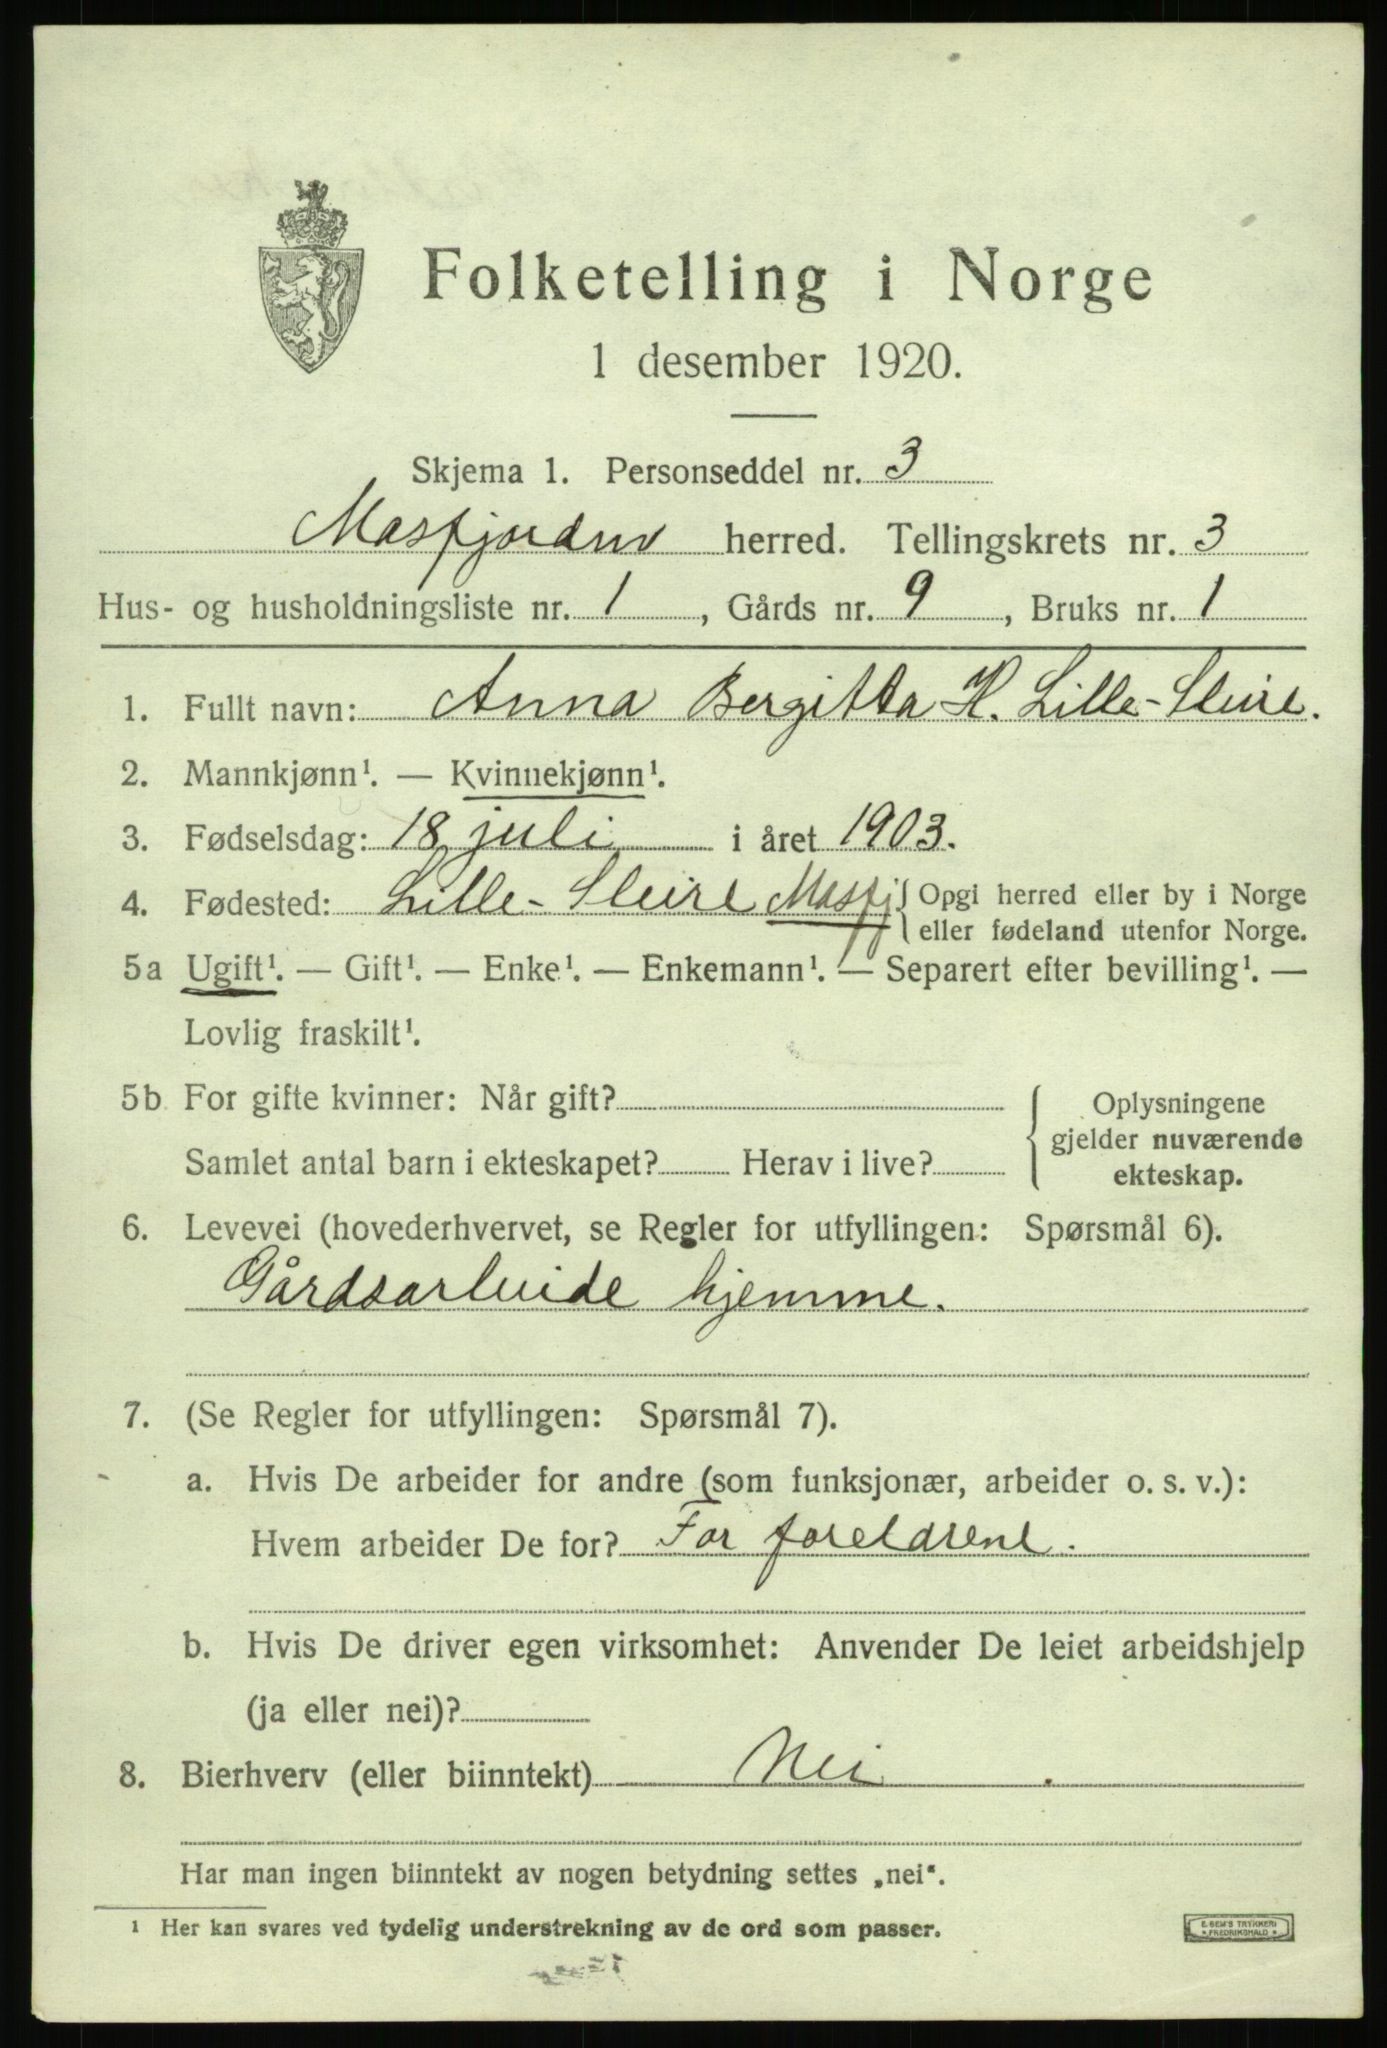 Folketelling i Norge
1 desember 1920.
Skjema 1. Personseddel nr. 3
Masfjorden herred. Tellingskrets nr. 3
Hus- og husholdningsliste nr. 1, Gårds nr. 9, Bruks nr. 1
1. Fullt navn: Anna Bergitta H. Lille-Sleire.
2. Mannkjønn¹. — Kvinnekjønn¹.
3. Fødselsdag: 18 juli i året 1903.
4. Fødested: Lille-Sleire Masfj { Opgi herred eller by i Norge
eller fødeland utenfor Norge.
5a Ugift¹. — Gift¹. — Enke¹. — Enkemann¹. — Separert efter bevilling¹. —
Lovlig fraskilt¹.
5b For gifte kvinner: Når gift?
Samlet antal barn i ekteskapet? Herav i live?
{ Oplysningene
gjelder nuværende
ekteskap.
6. Levevei (hovederhvervet, se Regler for utfyllingen: Spørsmål 6).
Gårdsarbeide hjemme.
7. (Se Regler for utfyllingen: Spørsmål 7).
a. Hvis De arbeider for andre (som funksjonær, arbeider o. s. v.):
Hvem arbeider De for? For foreldrene.
b. Hvis De driver egen virksomhet: Anvender De leiet arbeidshjelp
(ja eller nei)?
8. Bierhverv (eller biinntekt) Nei.
Har man ingen biinntekt av nogen betydning settes „nei“.
¹ Her kan svares ved tydelig understrekning av de ord som passer.
E. SEM'S TRYKKERI
FREDRIKSHALD